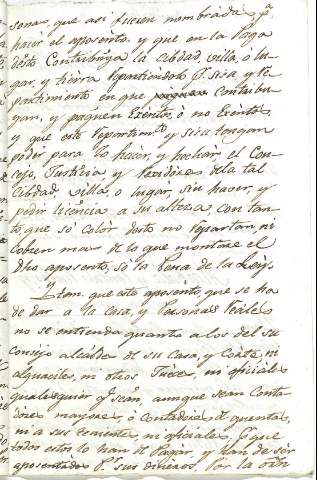 sonas, que asi fueren nombradas pª
hacer el aposento, y que en la Paga
desto Contribuya la cibdad, villa, o lu-
gar, y tierra repartiendolo pr. sisa, y re-
partimiento en que Contribu-
yan, y paguen Exentos, o no Exentos
y que este repartimto y sisa tengan
poder para lo hacer, y hechar el Con-
cejo, Justicia, y rexidores de la tal
Cibdad, villa o lugar, sin haver, y
pedir licencia a su alteza con tan-
to, que so color desto no repartan, ni
cobren mas de lo que montare el
dho aposento, so la Pena de la Ley.
Y
Iten que este aposento, que se ha
de dar a la casa, y Personas reales
no se entienda quanto a los del su
Consejo alcaldes de su Casa, y Corte, ni
alguaciles, ni otros Jueces, ni oficiales
qualesquier qe sean, aunque sean Conta-
dores mayores, o contadores de quentas,
ni a sus tenientes, ni oficiales, pr. que
todos estos lo han de Pagar, y han de ser
aposentados pr. sus dineros, Por la orn